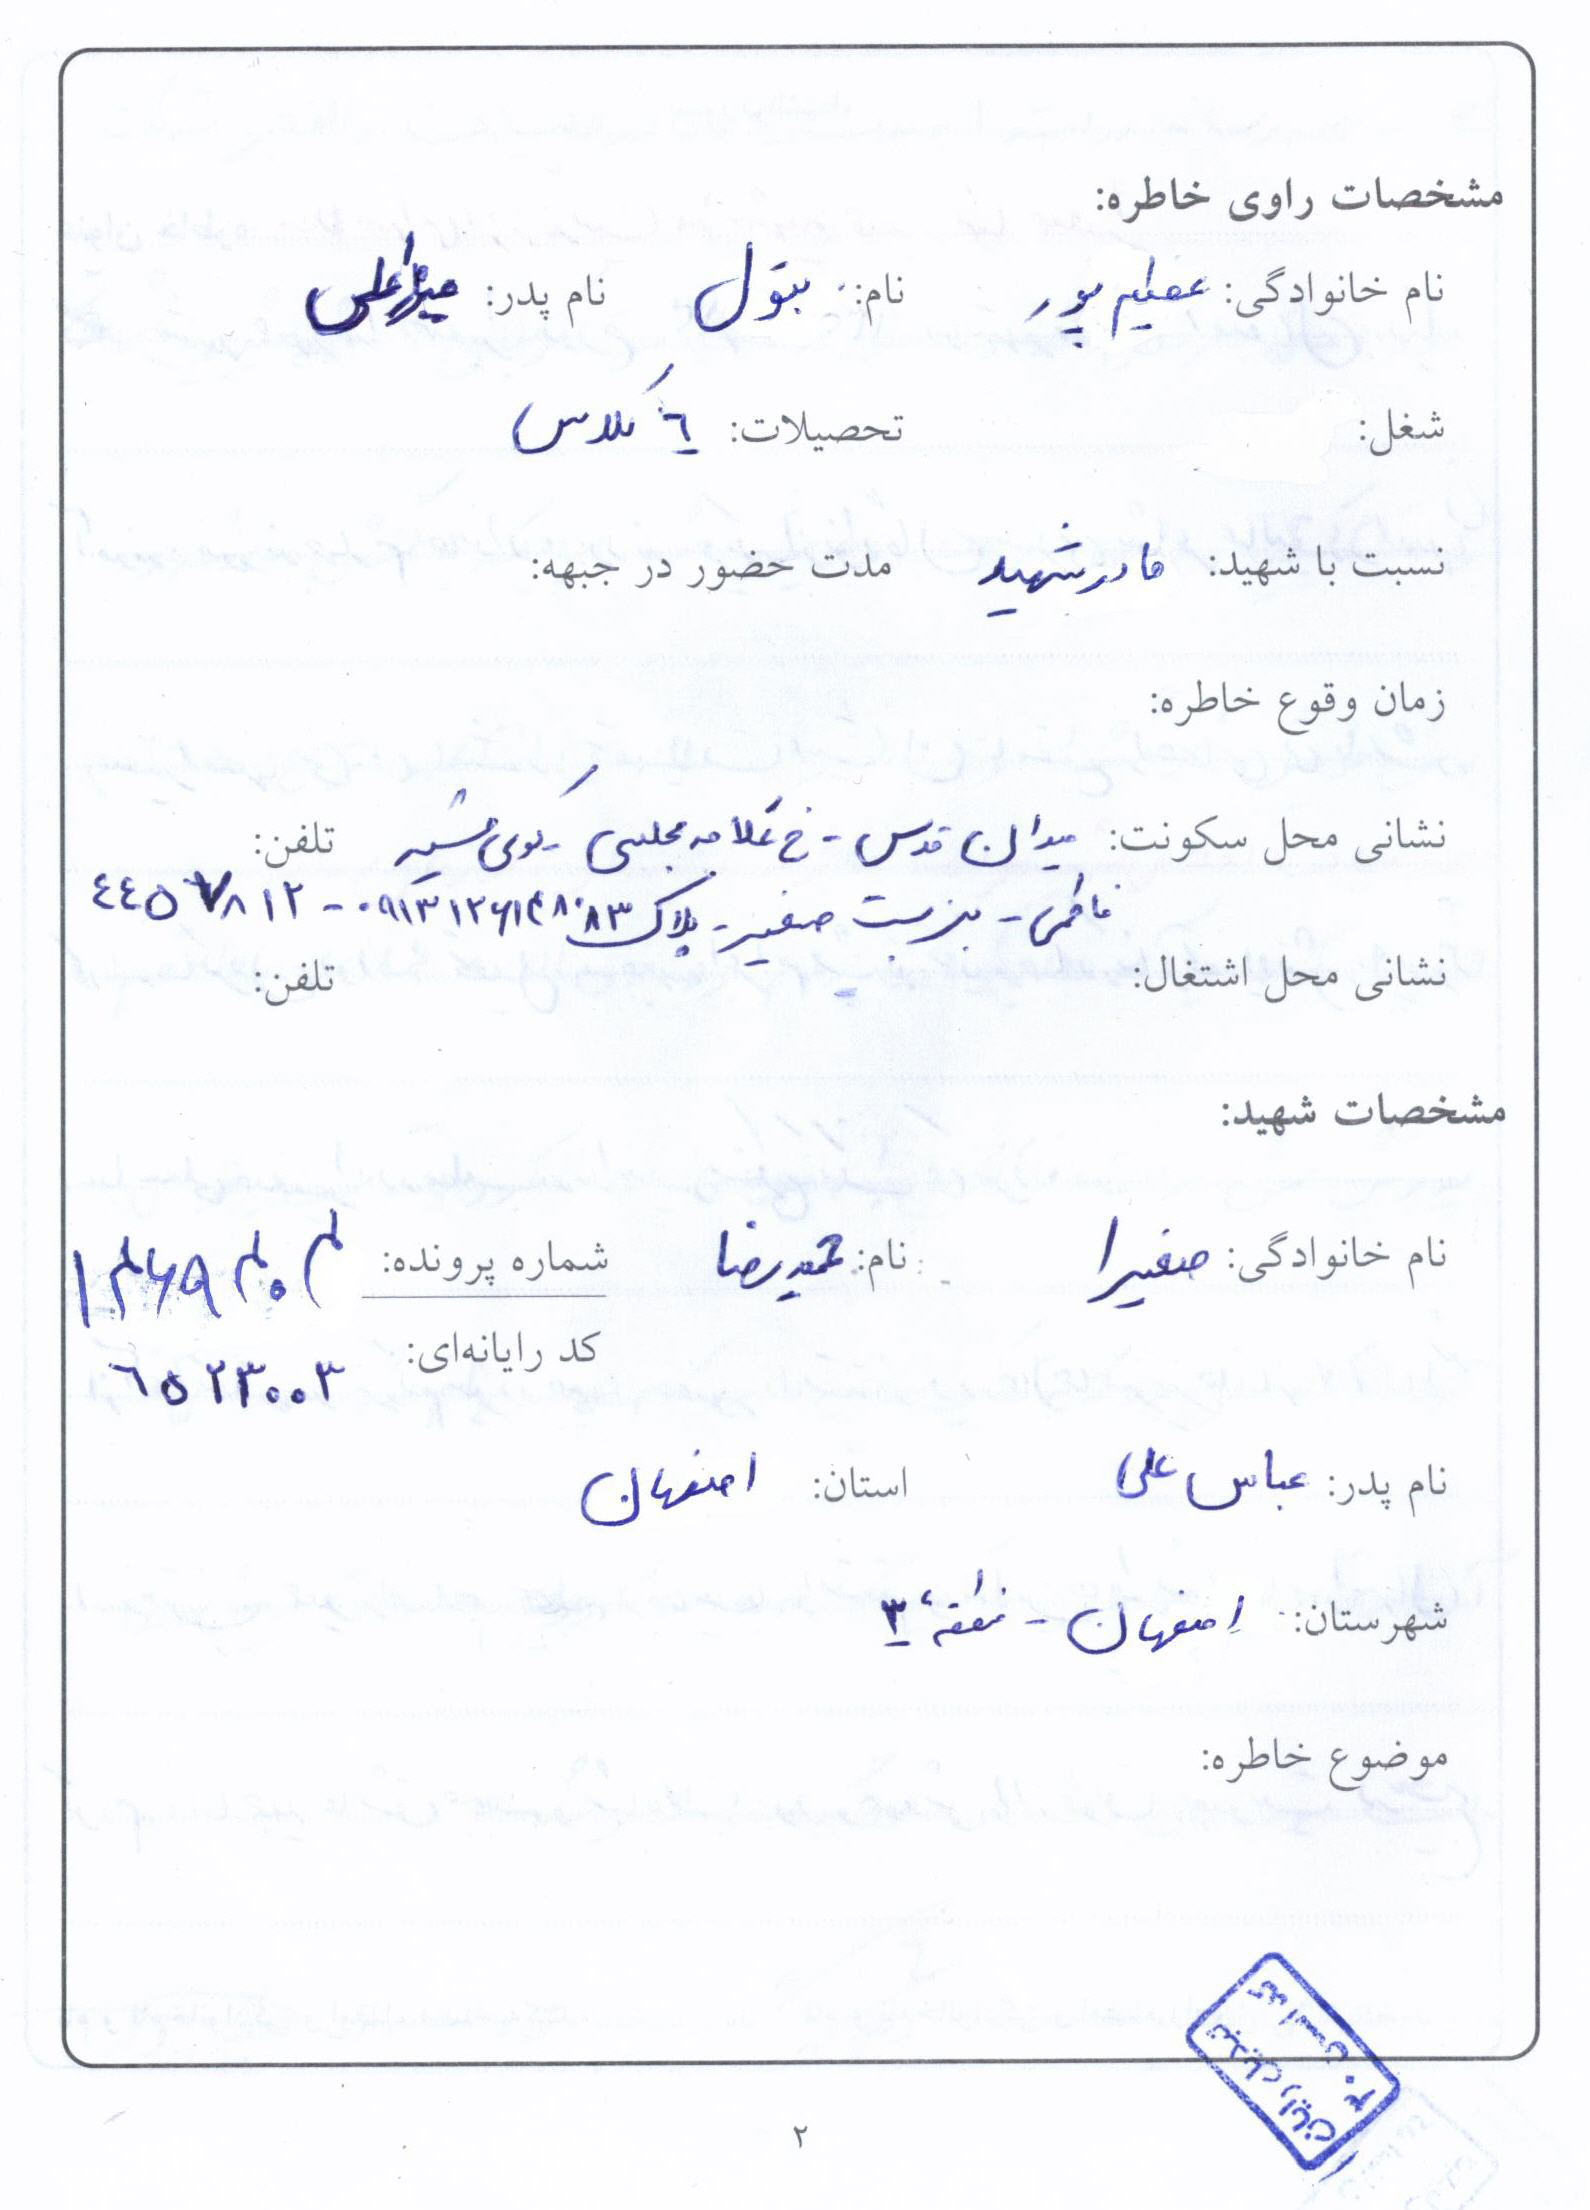 مشخصات راوی خاطره:
نام خانوادگی: عظیم پور نام: بتول نام پدر: میرزاعلی
شغل: تحصیلات: ٦ کلاس
نسبت با شهید: مادر شهید مدت حضور در جبهه:
زمان وقوع خاطره:
نشانی محل سکونت: میدان قدس - خ علامه مجلسی - کوی شهید تلفن:
فاطمی - بن بست صغیر - پلاک ۸۳
نشانی محل اشتغال: تلفن:
مشخصات شهید:
نام خانوادگی: صغیرا نام: محمدرضا شماره پرونده:
کد رایانه‌ای: ٦٥٢٣٠٠٣
نام پدر: عباس علی استان: اصفهان
شهرستان: اصفهان - منطقهٔ ٣
موضوع خاطره:
۲